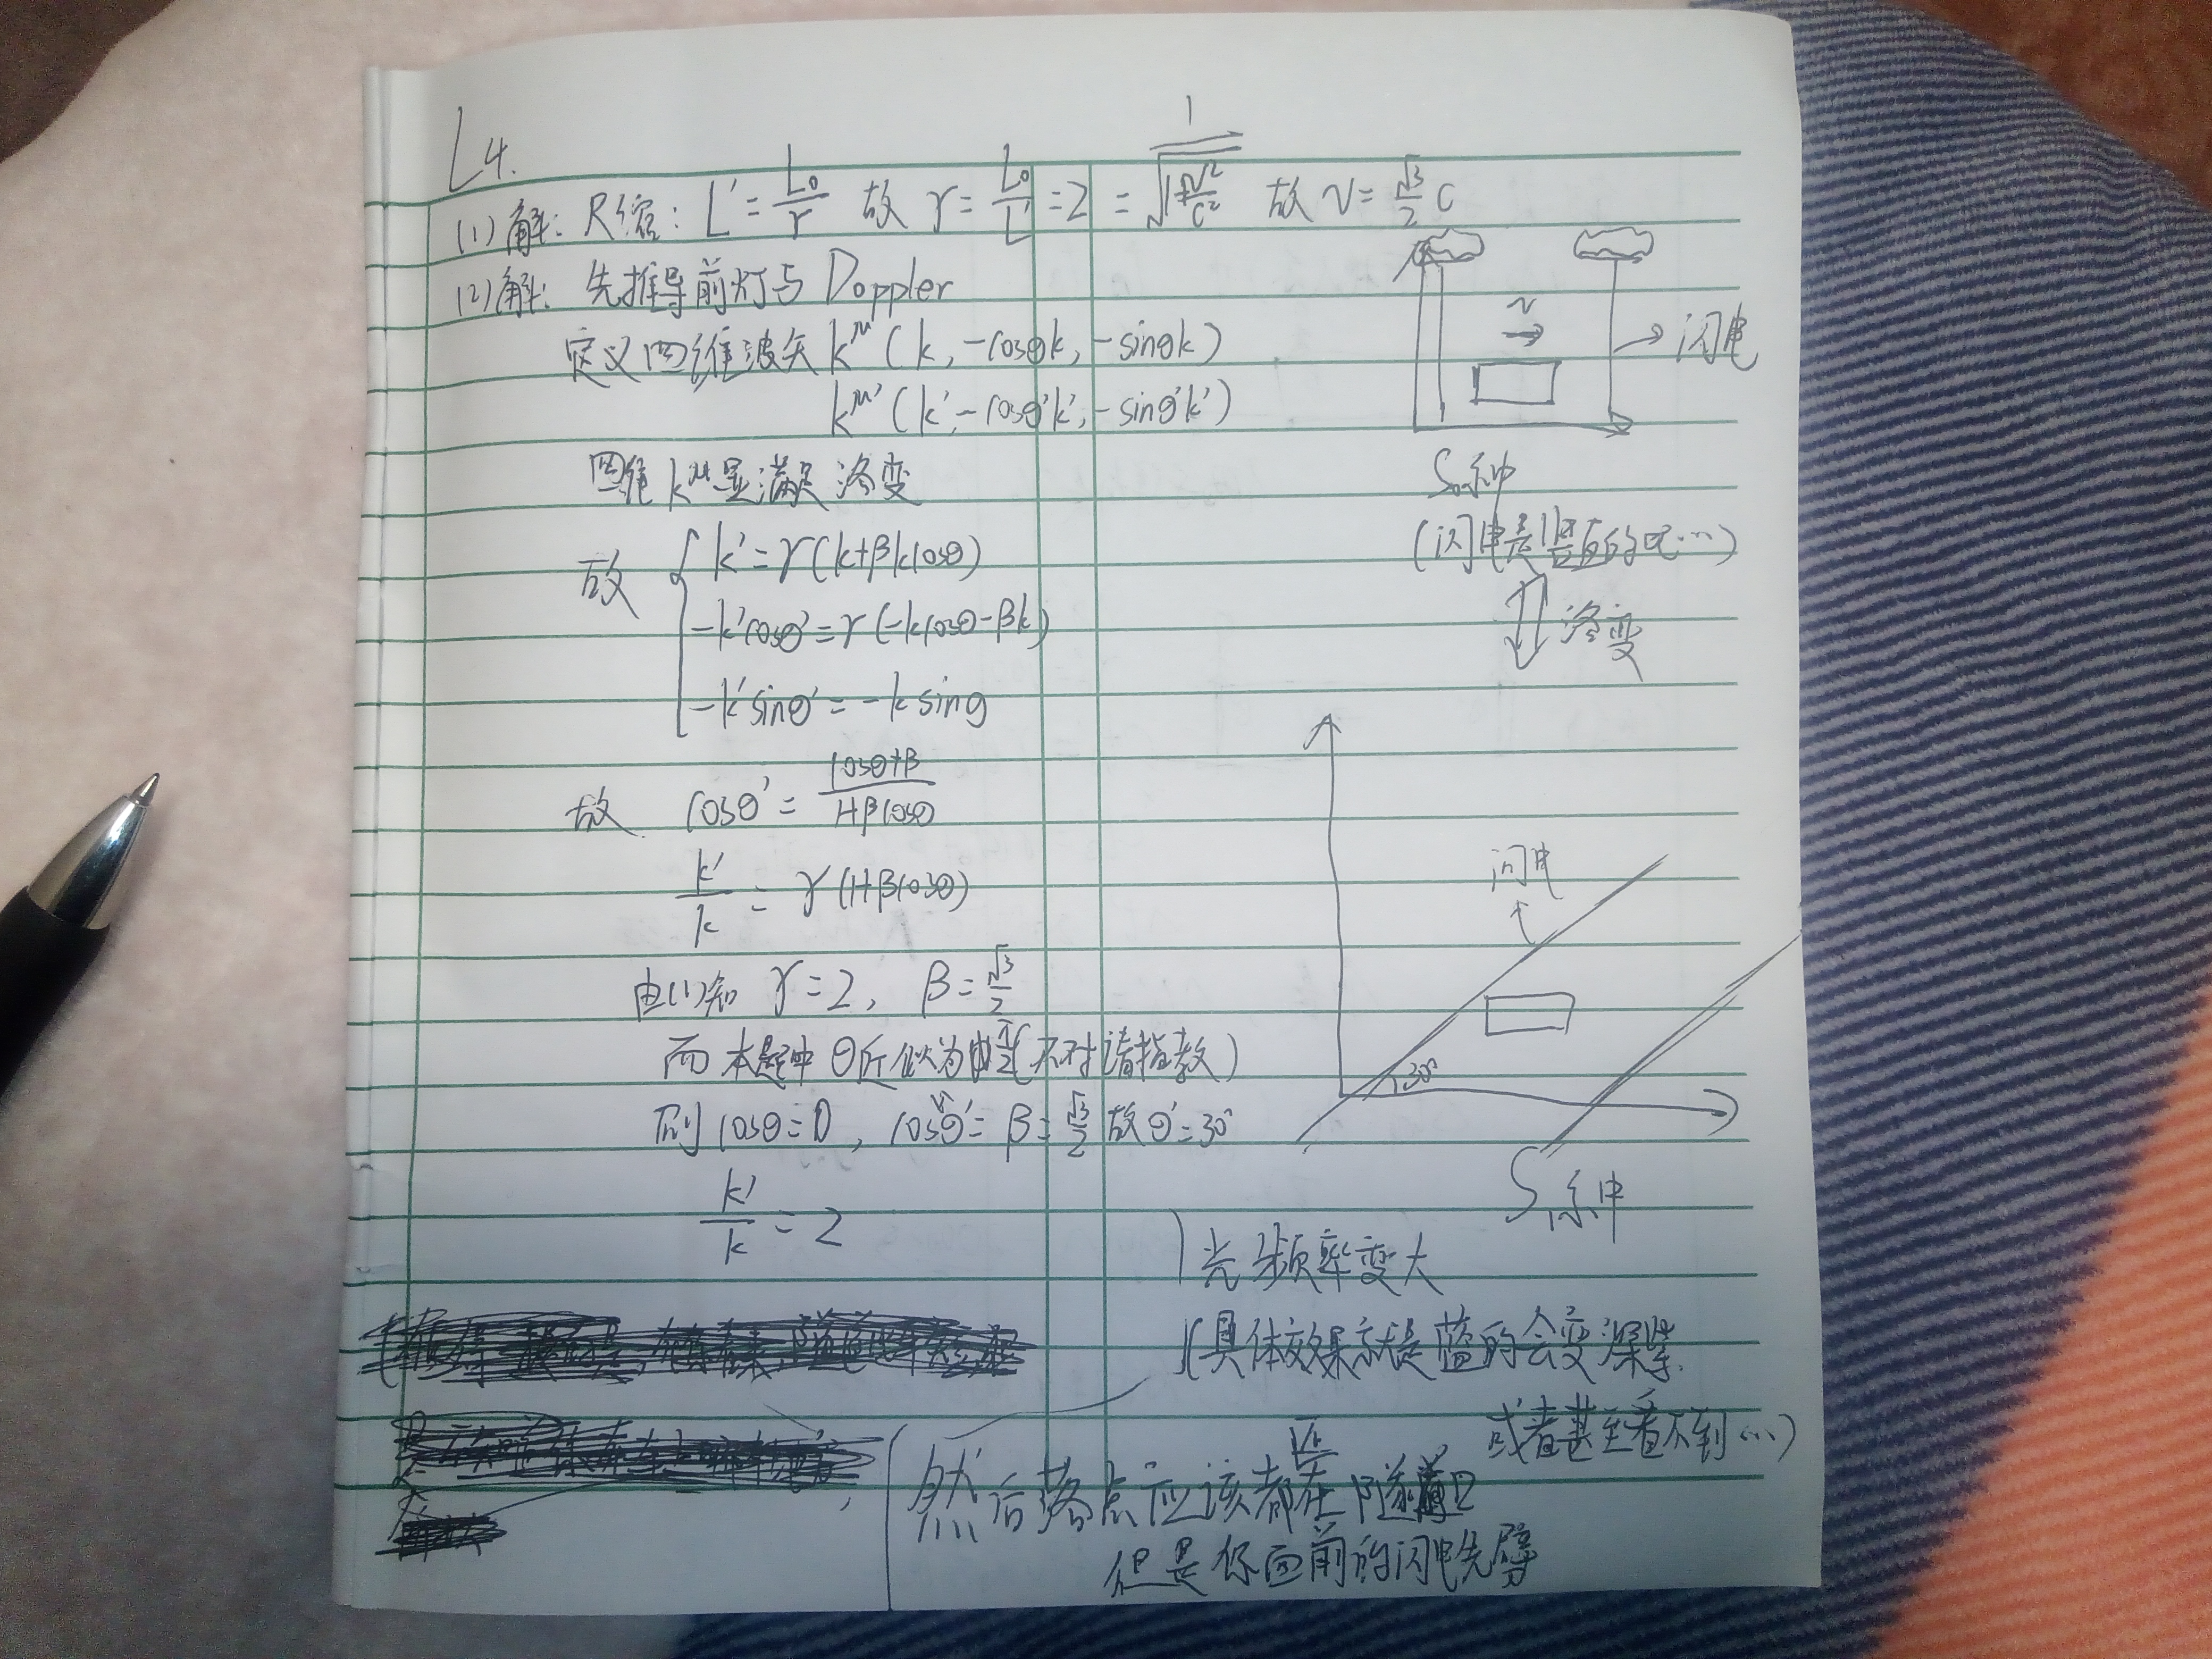 L4.
(1)解: 尺缩: L' = L₀/γ 故 γ = L₀/L' = 2 = 1/√(1-v²/c²) 故 v = √3/2 c
(2)解: 先推导前灯与 Doppler
定义四维波矢 k^μ (k, -cosθk, -sinθk)
k^μ' (k', -cosθ'k', -sinθ'k')
四维 k^μ 显满足洛变
故 { k' = γ(k+βkcosθ)
-k'cosθ' = γ(-kcosθ-βk)
-k'sinθ' = -ksinθ
故 cosθ' = (cosθ+β)/(1+βcosθ)
k'/k = γ(1+βcosθ)
由(1)知 γ=2, β = √3/2
而本题中 θ近似为 π/2 (不对请指教)
则 cosθ=0, cosθ' = β = √3/2 故 θ'=30°
k'/k = 2
v
闪电
S₀系中
(闪电是竖直的吧…)
洛变
闪电
30°
S系中
光频率变大
(具体效果就是蓝的会变深紫
或者甚至看不到…)
然后落点应该都在隧道口
但是你面前的闪电先劈